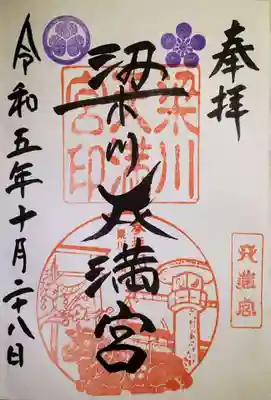 奉拝
梁川天満宮
梁川天満宮印
天満宮
令和五年十月二十八日